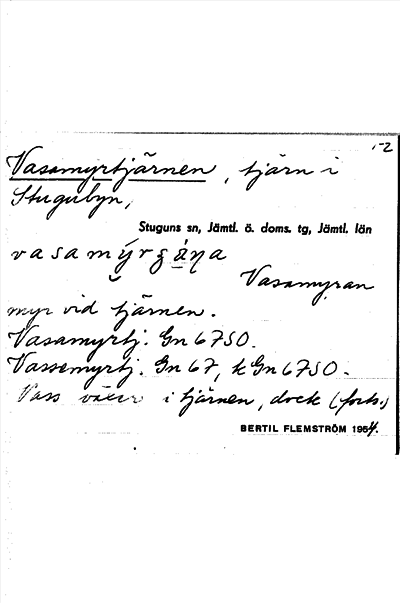 1-2
Vasamyrtjärnen, tjärn i
Stugubyn,
Stuguns sn, Jämtl. ö. doms. tg, Jämtl. län
Vasamyran
myr vid tjärnen.
Vasamyrtj. Gn 6750.
Vassemyrtj. Gn 67, kGn 6750.
Vass växer i tjärnen, dock (forts.)
BERTIL FLEMSTRÖM 1954.